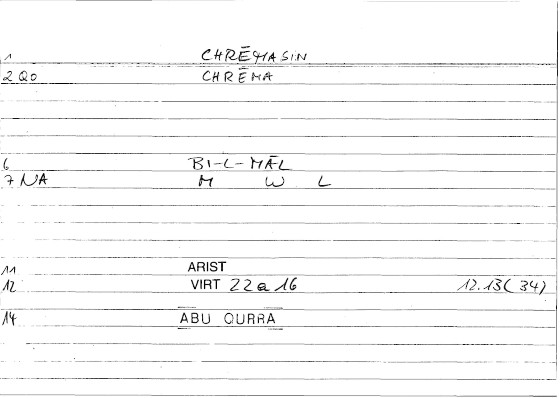 1 CHRĒMASIN
2 QO CHRĒMA
6 BI-L-MĀL
7 NA M W L
11 ARIST
12 VIRT 22a16 12.13(34)
14 ABU QURRA